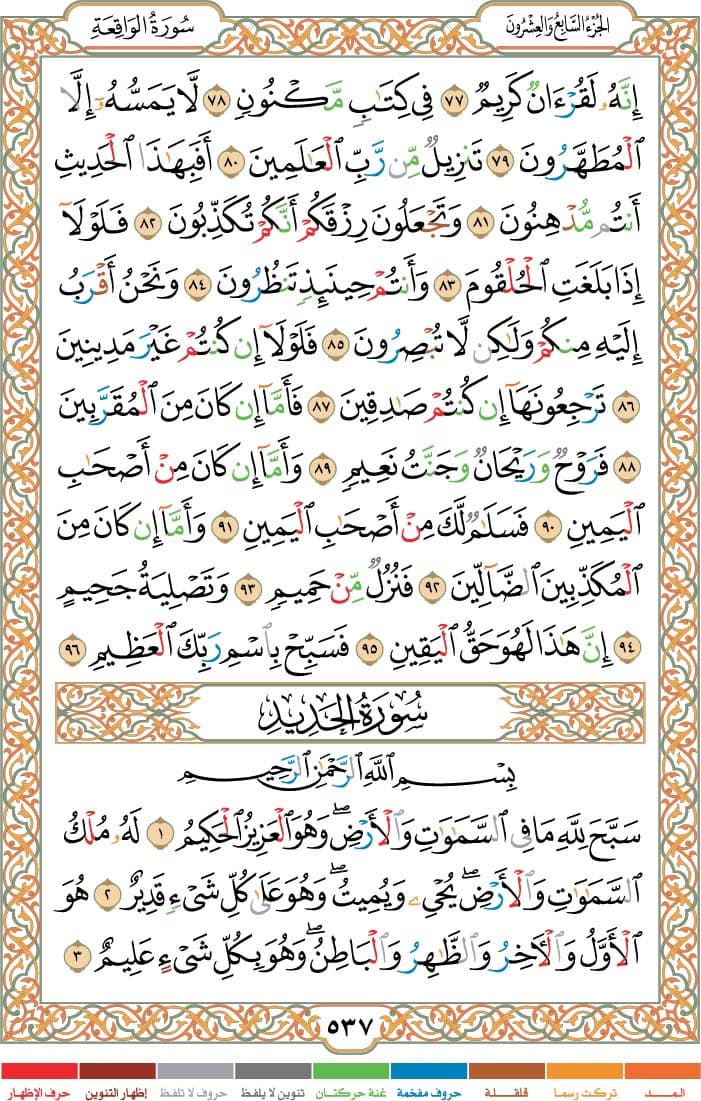 الجُزْءُ السَّابِعُ وَالعِشْرُونَ
سُورَةُ الوَاقِعَةِ
إِنَّهُۥ لَقُرْءَانٌ كَرِيمٌ ٧٧ فِى كِتَٰبٍ مَّكْنُونٍ ٧٨ لَّا يَمَسُّهُۥٓ إِلَّا
ٱلْمُطَهَّرُونَ ٧٩ تَنزِيلٌ مِّن رَّبِّ ٱلْعَٰلَمِينَ ٨٠ أَفَبِهَٰذَا ٱلْحَدِيثِ
أَنتُم مُّدْهِنُونَ ٨١ وَتَجْعَلُونَ رِزْقَكُمْ أَنَّكُمْ تُكَذِّبُونَ ٨٢ فَلَوْلَآ
إِذَا بَلَغَتِ ٱلْحُلْقُومَ ٨٣ وَأَنتُمْ حِينَئِذٍ تَنظُرُونَ ٨٤ وَنَحْنُ أَقْرَبُ
إِلَيْهِ مِنكُمْ وَلَٰكِن لَّا تُبْصِرُونَ ٨٥ فَلَوْلَآ إِن كُنتُمْ غَيْرَ مَدِينِينَ
٨٦ تَرْجِعُونَهَآ إِن كُنتُمْ صَٰدِقِينَ ٨٧ فَأَمَّآ إِن كَانَ مِنَ ٱلْمُقَرَّبِينَ
٨٨ فَرَوْحٌ وَرَيْحَانٌ وَجَنَّتُ نَعِيمٍ ٨٩ وَأَمَّآ إِن كَانَ مِنْ أَصْحَٰبِ
ٱلْيَمِينِ ٩٠ فَسَلَٰمٌ لَّكَ مِنْ أَصْحَٰبِ ٱلْيَمِينِ ٩١ وَأَمَّآ إِن كَانَ مِنَ
ٱلْمُكَذِّبِينَ ٱلضَّآلِّينَ ٩٢ فَنُزُلٌ مِّنْ حَمِيمٍ ٩٣ وَتَصْلِيَةُ جَحِيمٍ
٩٤ إِنَّ هَٰذَا لَهُوَ حَقُّ ٱلْيَقِينِ ٩٥ فَسَبِّحْ بِٱسْمِ رَبِّكَ ٱلْعَظِيمِ ٩٦
سُورَةُ الحَدِيدِ
بِسْمِ ٱللَّهِ ٱلرَّحْمَٰنِ ٱلرَّحِيمِ
سَبَّحَ لِلَّهِ مَا فِى ٱلسَّمَٰوَٰتِ وَٱلْأَرْضِ ۖ وَهُوَ ٱلْعَزِيزُ ٱلْحَكِيمُ ١ لَهُۥ مُلْكُ
ٱلسَّمَٰوَٰتِ وَٱلْأَرْضِ ۖ يُحْىِۦ وَيُمِيتُ ۖ وَهُوَ عَلَىٰ كُلِّ شَىْءٍ قَدِيرٌ ٢ هُوَ
ٱلْأَوَّلُ وَٱلْءَاخِرُ وَٱلظَّٰهِرُ وَٱلْبَاطِنُ ۖ وَهُوَ بِكُلِّ شَىْءٍ عَلِيمٌ ٣
٥٣٧
المـــد تركت رسما قلقـــلة حروف مفخمة غنة حركتان تنوين لا يلفظ حروف لا تلفظ إظهار التنوين حرف الإظهار